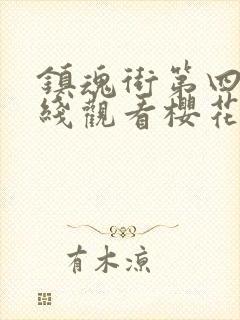 鎮魂街第四
綫觀看櫻花
有木涼